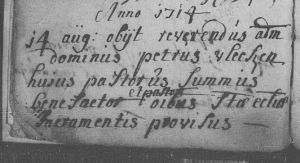 Anno 1714
14 aug: obijt reverendus adm
dominus petrus vlecken
huius pastoris summus
et pastor
benefactor oibus stae eccliae
sacramentis provisus